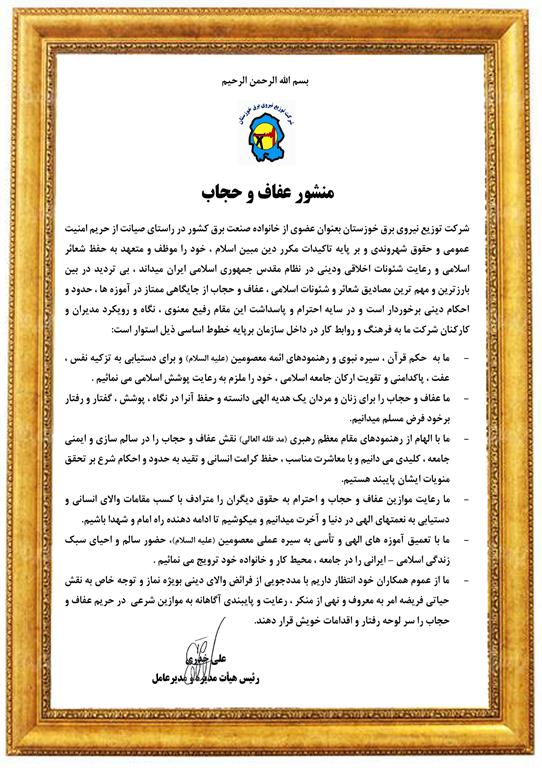 بسم الله الرحمن الرحیم
شرکت توزیع نیروی برق خوزستان
منشور عفاف و حجاب
شرکت توزیع نیروی برق خوزستان بعنوان عضوی از خانواده صنعت برق کشور در راستای صیانت از حریم امنیت
عمومی و حقوق شهروندی و بر پایه تاکیدات مکرر دین مبین اسلام ، خود را موظف و متعهد به حفظ شعائر
اسلامی و رعایت شئونات اخلاقی ودینی در نظام مقدس جمهوری اسلامی ایران میداند ، بی تردید در بین
بارزترین و مهم ترین مصادیق شعائر و شئونات اسلامی ، عفاف و حجاب از جایگاهی ممتاز در آموزه ها ، حدود و
احکام دینی برخوردار است و در سایه احترام و پاسداشت این مقام رفیع معنوی ، نگاه و رویکرد مدیران و
کارکنان شرکت ما به فرهنگ و روابط کار در داخل سازمان برپایه خطوط اساسی ذیل استوار است:
- ما به حکم قرآن ، سیره نبوی و رهنمودهای ائمه معصومین (علیه السلام) و برای دستیابی به تزکیه نفس ،
عفت ، پاکدامنی و تقویت ارکان جامعه اسلامی ، خود را ملزم به رعایت پوشش اسلامی می نمائیم .
- ما عفاف و حجاب را برای زنان و مردان یک هدیه الهی دانسته و حفظ آنرا در نگاه ، پوشش ، گفتار و رفتار
برخود فرض مسلم میدانیم.
- ما با الهام از رهنمودهای مقام معظم رهبری (مد ظله العالی) نقش عفاف و حجاب را در سالم سازی و ایمنی
جامعه ، کلیدی می دانیم و با معاشرت مناسب ، حفظ کرامت انسانی و تقید به حدود و احکام شرع بر تحقق
منویات ایشان پایبند هستیم.
- ما رعایت موازین عفاف و حجاب و احترام به حقوق دیگران را مترادف با کسب مقامات والای انسانی و
دستیابی به نعمتهای الهی در دنیا و آخرت میدانیم و میکوشیم تا ادامه دهنده راه امام و شهدا باشیم.
- ما با تعمیق آموزه های الهی و تأسی به سیره عملی معصومین (علیه السلام)، حضور سالم و احیای سبک
زندگی اسلامی – ایرانی را در جامعه ، محیط کار و خانواده خود ترویج می نمائیم .
- ما از عموم همکاران خود انتظار داریم با مددجویی از فرائض والای دینی بویژه نماز و توجه خاص به نقش
حیاتی فریضه امر به معروف و نهی از منکر ، رعایت و پایبندی آگاهانه به موازین شرعی در حریم عفاف و
حجاب را سر لوحه رفتار و اقدامات خویش قرار دهند.
علی خدری
رئیس هیأت مدیره و مدیرعامل